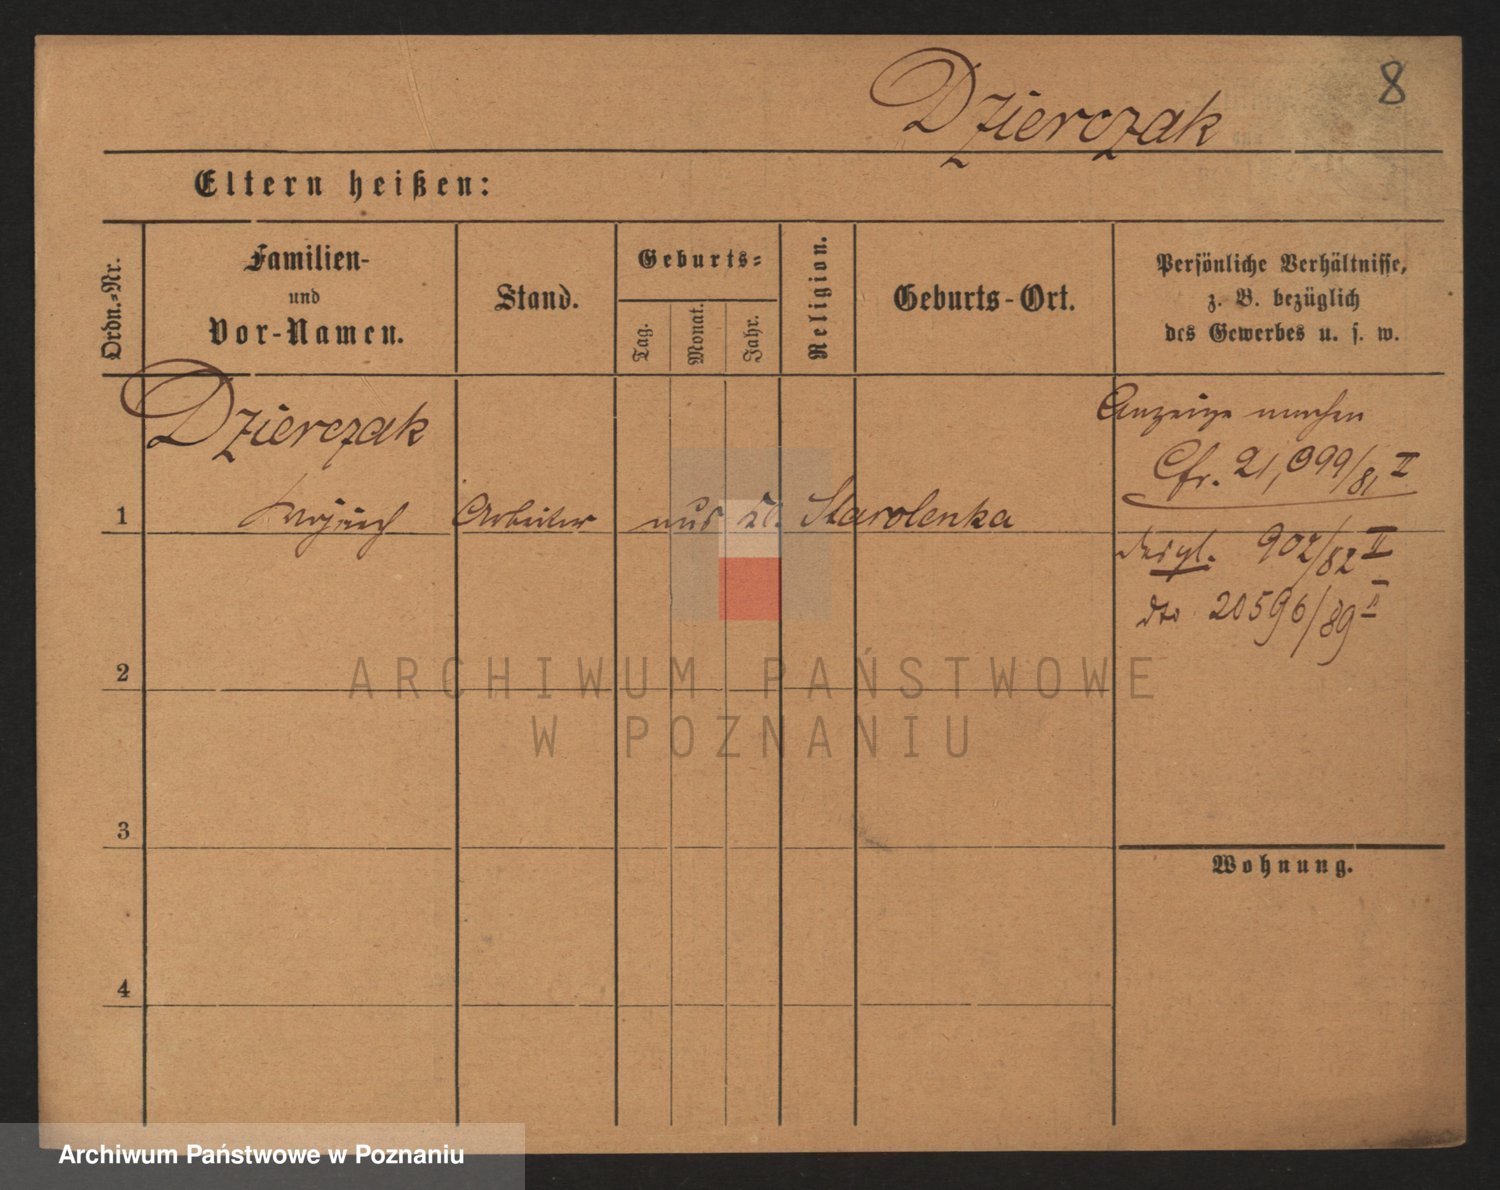 8
Dzierczak
Eltern heißen:
Ordn.=Nr.
Familien-
und
Vor-Namen.
Stand.
Geburts=
Tag.
Monat.
Jahr.
Religion.
Geburts-Ort.
Persönliche Verhältnisse,
z. B. bezüglich
des Gewerbes u. s. w.
Dzierczak
1 Wojciech Arbeiter aus Kl. Starolenka
Anzeige machen
Cfr. 21,099/81 II
desgl. 902/82 II
dto 20596/89 II
2
3
4
Wohnung.
ARCHIWUM PAŃSTWOWE
W POZNANIU
Archiwum Państwowe w Poznaniu